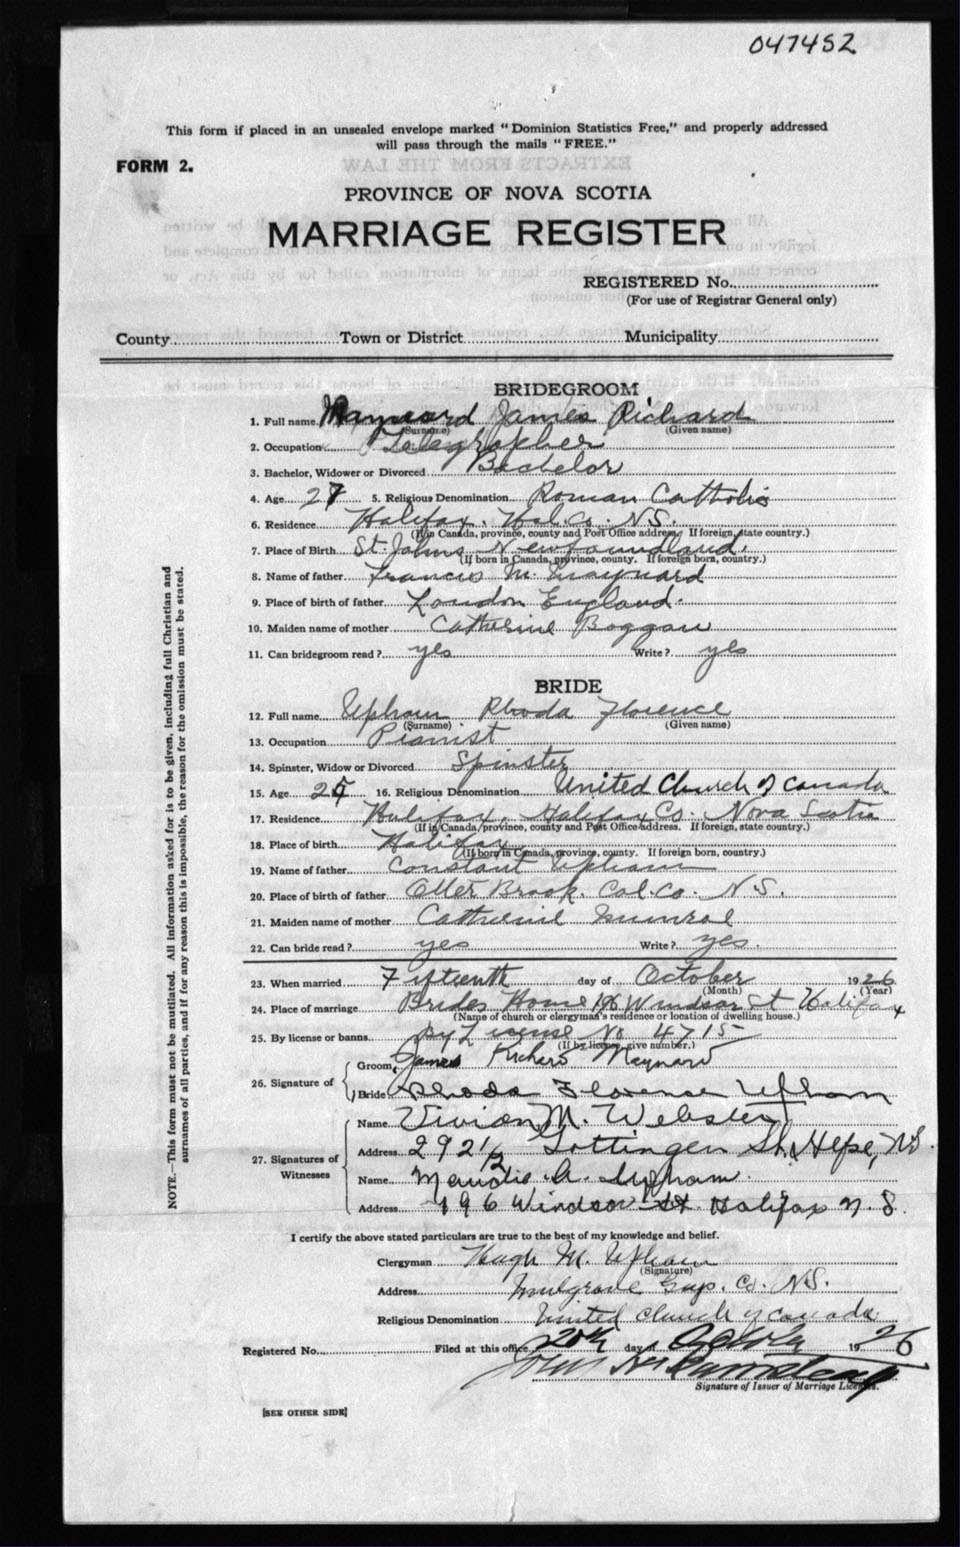 047452
This form if placed in an unsealed envelope marked "Dominion Statistics Free," and properly addressed
will pass through the mails "FREE."
FORM 2.
PROVINCE OF NOVA SCOTIA
MARRIAGE REGISTER
REGISTERED No.
(For use of Registrar General only)
County Town or District Municipality
BRIDEGROOM
1. Full name Maynard James Richard
(Surname) (Given name)
2. Occupation Telegrapher
3. Bachelor, Widower or Divorced Bachelor
4. Age 27 5. Religious Denomination Roman Catholic
6. Residence Halifax, Hal. Co. N.S.
(If in Canada, province, county and Post Office address. If foreign, state country.)
7. Place of Birth St. Johns Newfoundland.
(If born in Canada, province, county. If foreign born, country.)
8. Name of father Francis M. Maynard
9. Place of birth of father London England.
10. Maiden name of mother Catherine Boggan
11. Can bridegroom read? yes Write? yes
BRIDE
12. Full name Upham Rhoda Florence
(Surname) (Given name)
13. Occupation Pianist
14. Spinster, Widow or Divorced Spinster
15. Age 2 16. Religious Denomination United Church of Canada
17. Residence Halifax, Halifax Co. Nova Scotia
(If in Canada, province, county and Post Office address. If foreign, state country.)
18. Place of birth Halifax
(If born in Canada, province, county. If foreign born, country.)
19. Name of father Constant Upham
20. Place of birth of father Otter Brook, Col. Co. N.S.
21. Maiden name of mother Catherine Munroe
22. Can bride read? yes Write? yes.
23. When married Fifteenth day of October 1926
(Month) (Year)
24. Place of marriage Brides Home 196 Windsor St Halifax
(Name of church or clergyman's residence or location of dwelling house.)
25. By license or banns By License No 4715
(If by license, give number.)
26. Signature of Groom James Richard Maynard
Bride Rhoda Florence Upham
27. Signatures of Witnesses Name Vivian M. Webster
Address 292 1/2 Gottingen St. Hfx, N.S.
Name Maude A. Upham
Address 196 Windsor St Halifax N.S.
I certify the above stated particulars are true to the best of my knowledge and belief.
Clergyman Hugh M. Upham
(Signature)
Address Mulgrave Guy. Co. N.S.
Religious Denomination United Church of Canada
Registered No. Filed at this office 20th day of October 1926
John
Signature of Issuer of Marriage Licenses.
[SEE OTHER SIDE]
NOTE.—This form must not be mutilated. All information asked for is to be given, including full Christian and
surnames of all parties, and if for any reason this is impossible, the reason for the omission must be stated.